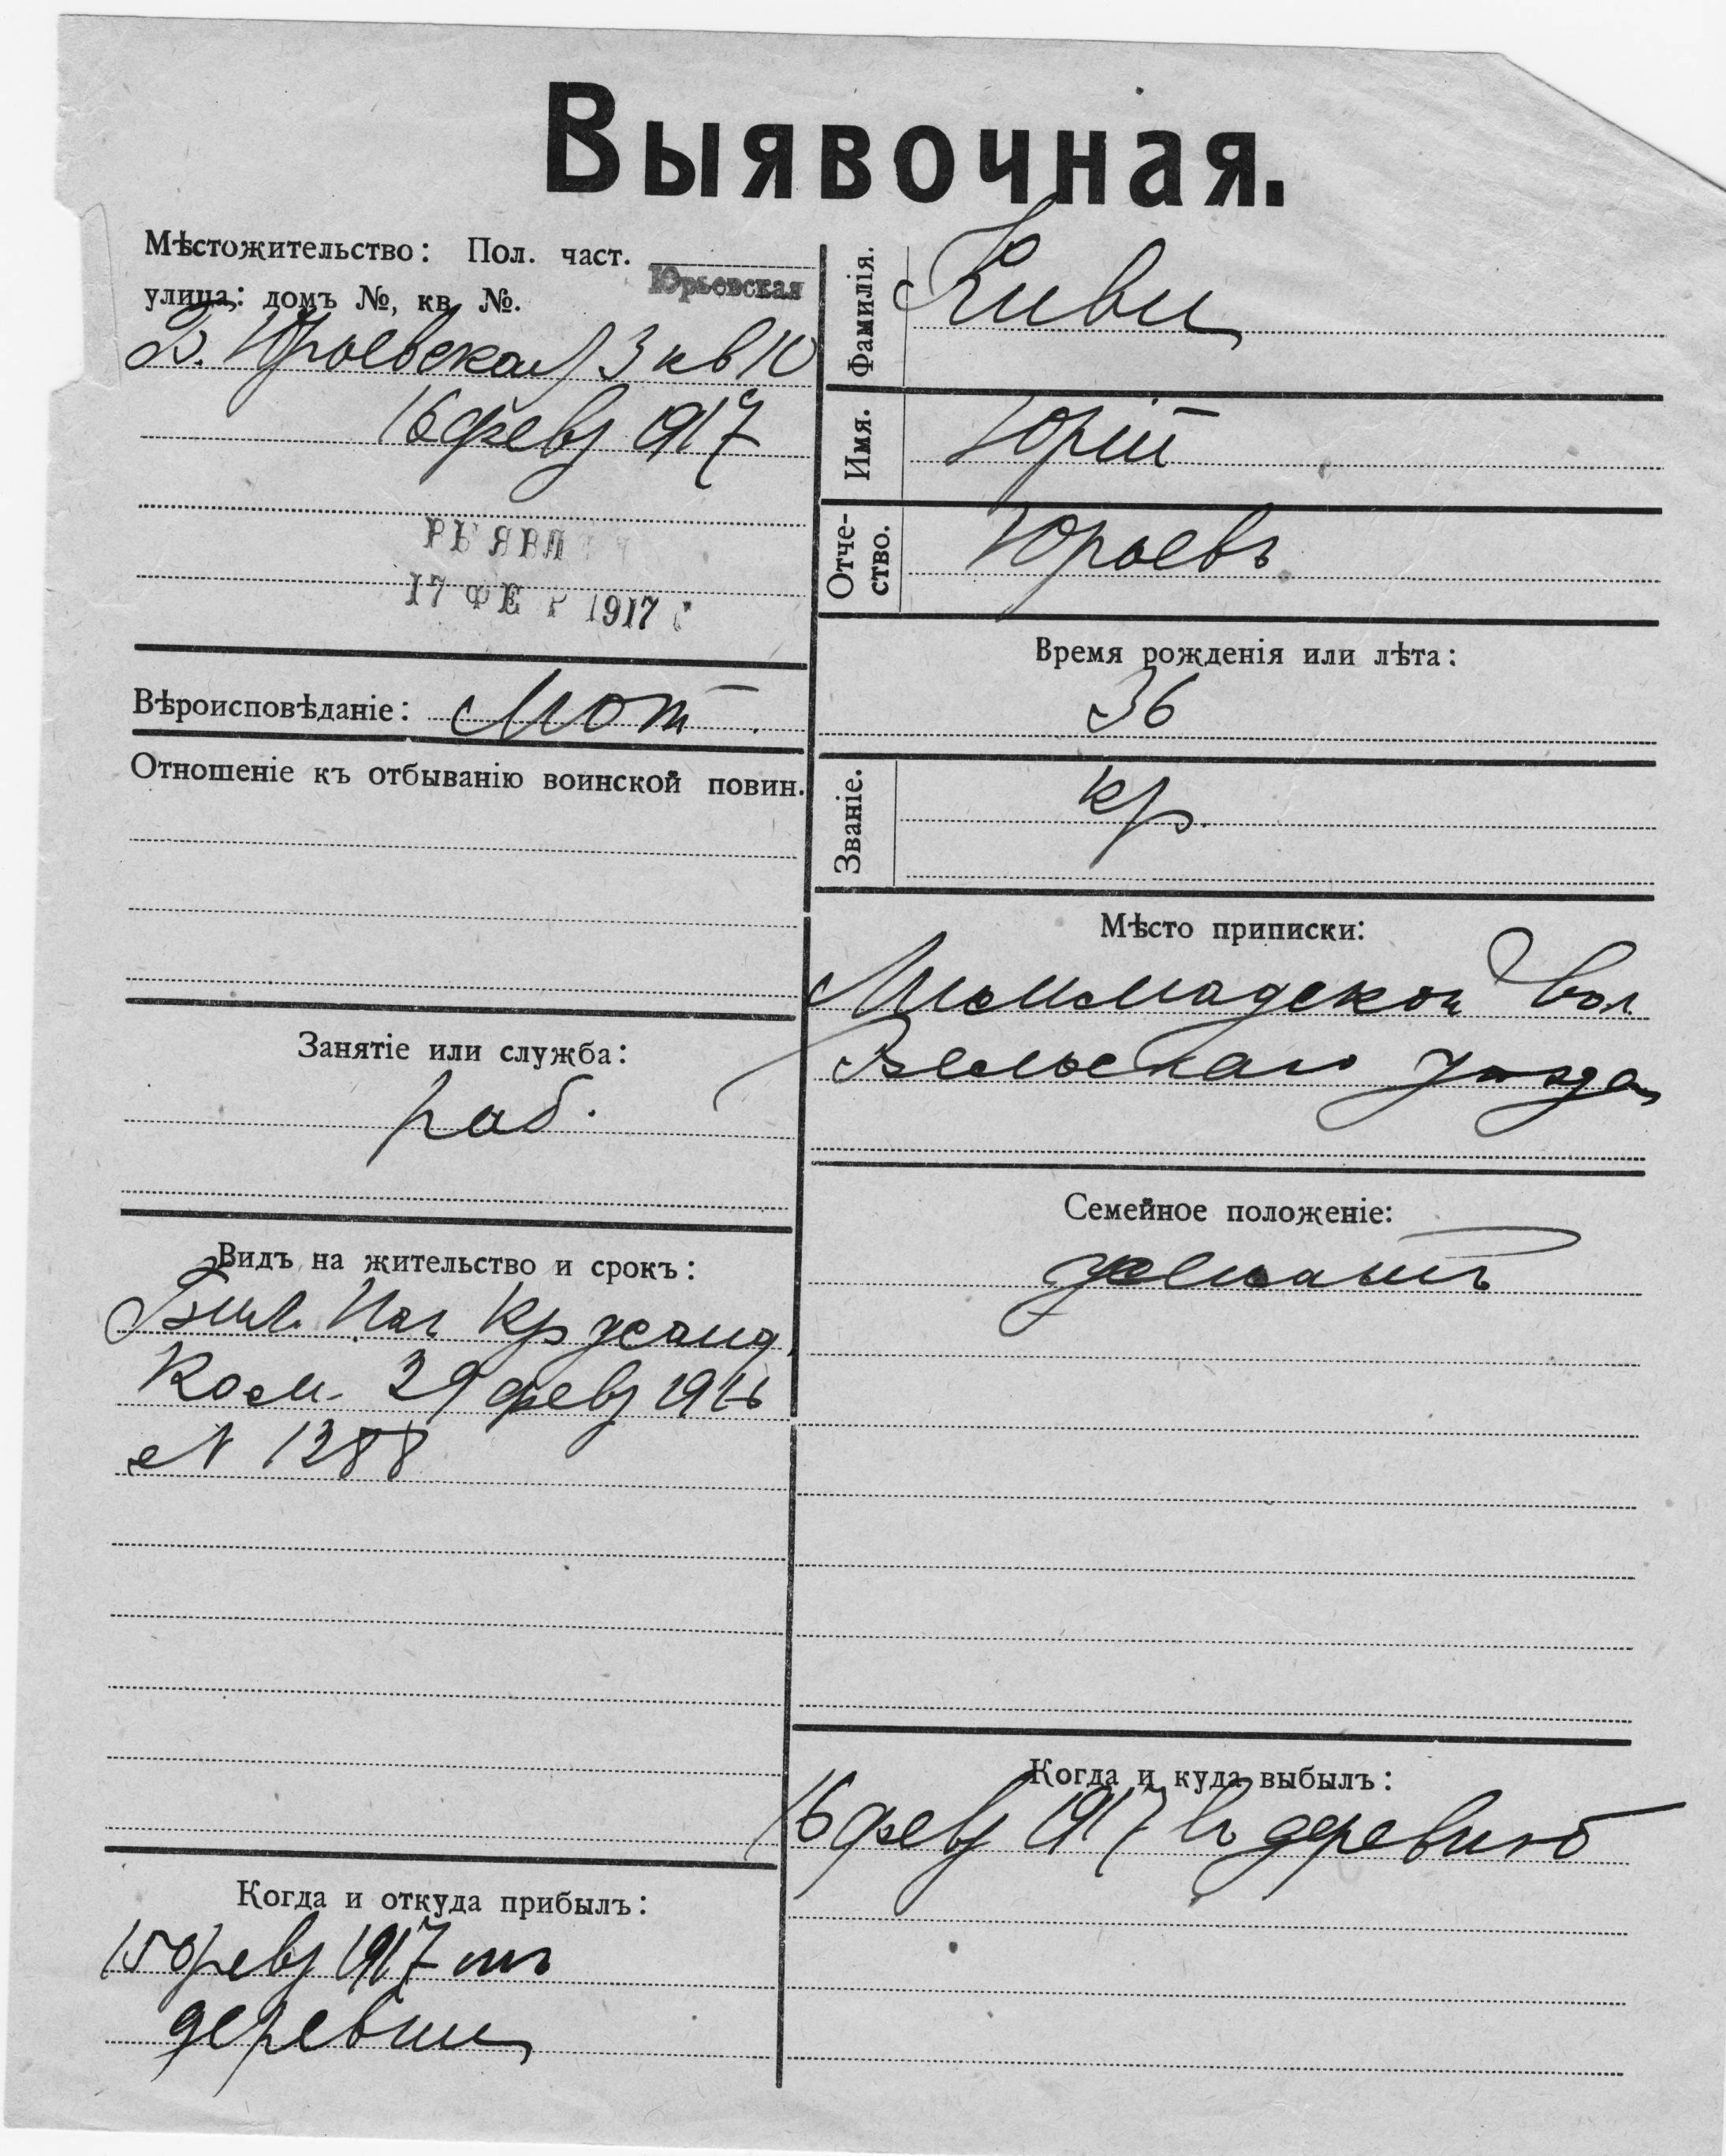 Выявочная.
Мѣстожительство: Пол. част.
Юрьевская
улица: домъ №, кв. №.
Б. Юрьевская 3 кв 10
16 февр 1917
17 ФЕ 1917
Вѣроисповѣданіе: Лют.
Отношеніе къ отбыванію воинской повин.
Занятіе или служба:
раб.
Видъ на жительство и срокъ:
Кр
29 февр 1916
№ 1288
Когда и откуда прибылъ:
15 февр 1917 изъ
деревни
Фамилія.
Киви
Имя.
Юрій
Отче-
ство.
Юрьевъ
Время рожденія или лѣта:
36
Званіе.
кр.
Мѣсто приписки:
вол.
уѣзда
Семейное положеніе:
женатъ
Когда и куда выбылъ:
16 февр 1917 въ деревню